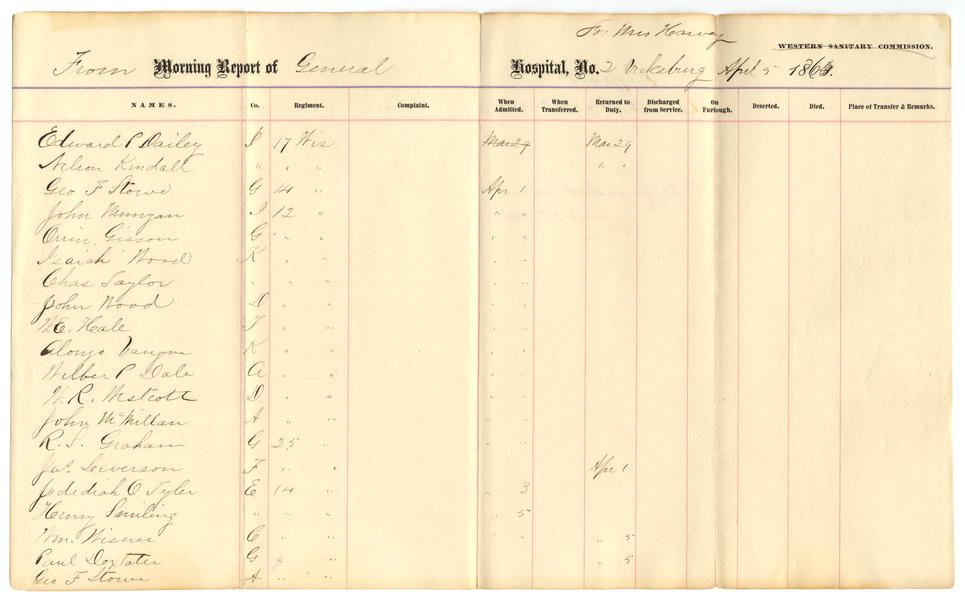 For Mrs Harvey
WESTERN SANITARY COMMISSION.
From Morning Report of General Hospital, No. 2 Vicksburg April 5 1864.
NAMES. Co. Regiment. Complaint. When Admitted. When Transferred. Returned to Duty. Discharged from Service. On Furlough. Deserted. Died. Place of Transfer & Remarks.
Edward P Dailey 17 Wis Mar 29 Mar 29
Nelson Kindall " " " " "
Geo F Stowe G 14 " Apr 1
John Mungan I 12 " " "
Orrin Gisson G " " " "
Isaiah Wood K " " " "
Chas Taylor " " " " "
John Wood D " " " "
Heale F " " " "
Alonzo K " " " "
Wilber P Dale A " " " "
W. R. Westcott D " " " "
John McMillan A " " " "
R. S. Graham G 25 " " "
Jas. F " " Apr 1
Jedediah O Tyler E 14 " " 3
Henry Smiling " " " " 5
Wm. Wisner C " " " " " 5
Paul Doxtater G " " 5
Geo F Stowe A " "